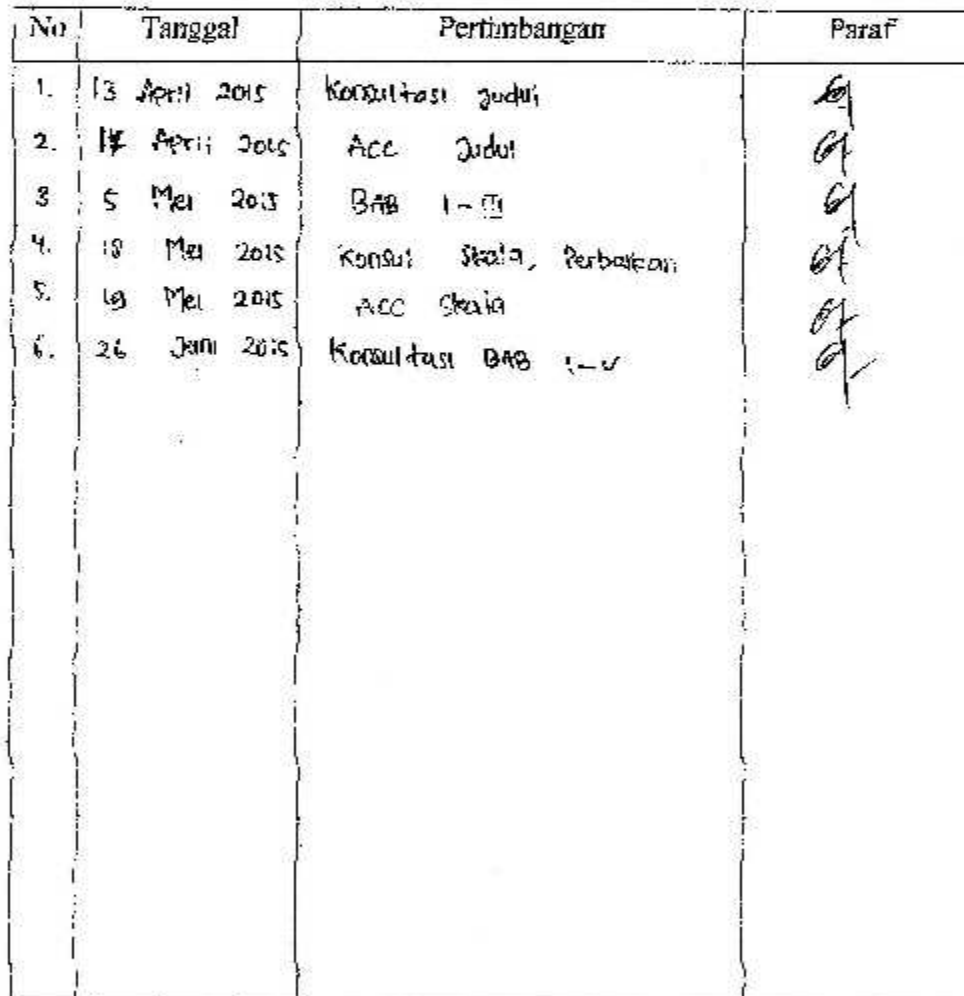 No Tanggal Pertimbangan Paraf
1. 13 April 2015 Konsultasi Judul
2. 17 April 2015 Acc Judul
3 5 Mei 2015 BAB I - III
4. 18 Mei 2015 Konsul Skala, Perbaikan
5. 19 Mei 2015 Acc Skala
6. 26 Juni 2015 Konsultasi BAB I - V